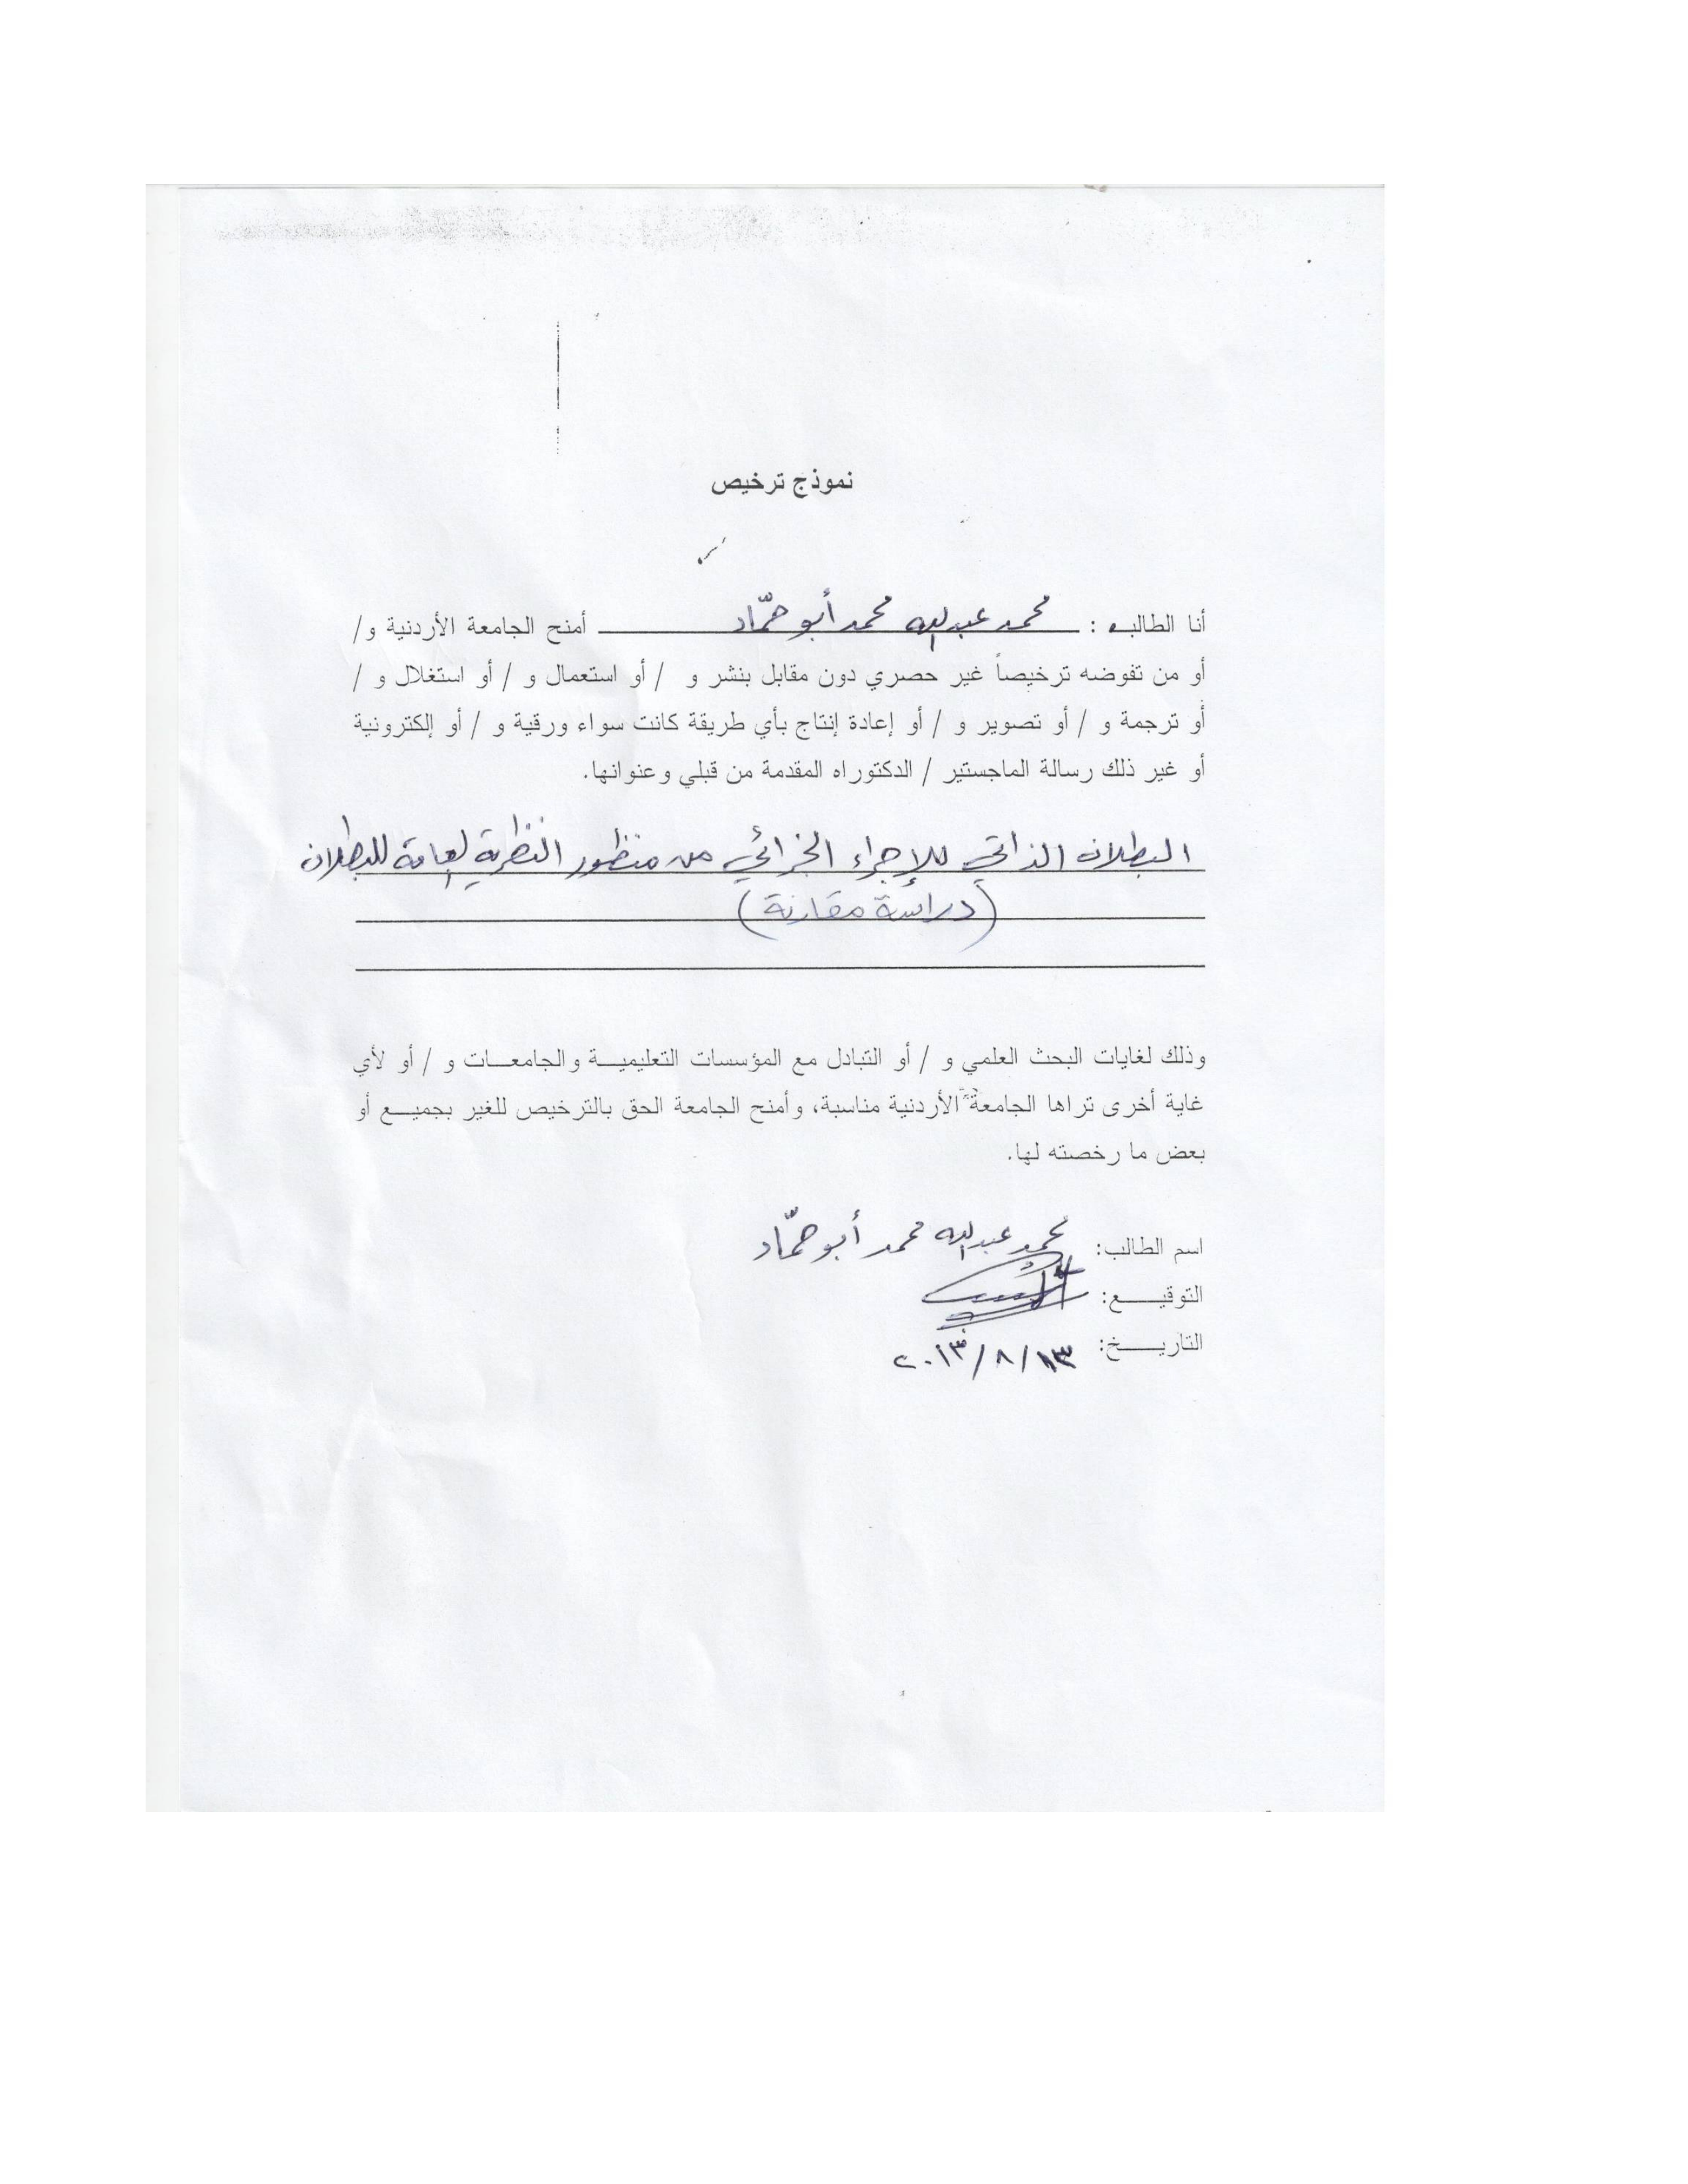 نموذج ترخيص
أنا الطالب : محمد عبدالله محمد أبو حمّاد أمنح الجامعة الأردنية و/
أو من تفوضه ترخيصاً غير حصري دون مقابل بنشر و / أو استعمال و / أو استغلال و /
أو ترجمة و / أو تصوير و / أو إعادة إنتاج بأي طريقة كانت سواء ورقية و / أو إلكترونية
أو غير ذلك رسالة الماجستير / الدكتوراه المقدمة من قبلي وعنوانها.
البطلان الذاتي للإجراء الجزائي من منظور النظرية العامة للبطلان
(دراسة مقارنة)
وذلك لغايات البحث العلمي و / أو التبادل مع المؤسسات التعليمية والجامعات و / أو لأي
غاية أخرى تراها الجامعة الأردنية مناسبة، وأمنح الجامعة الحق بالترخيص للغير بجميع أو
بعض ما رخصته لها.
اسم الطالب: محمد عبدالله محمد أبو حمّاد
التوقيع:
التاريخ: ١٣/٨/٢٠١٣